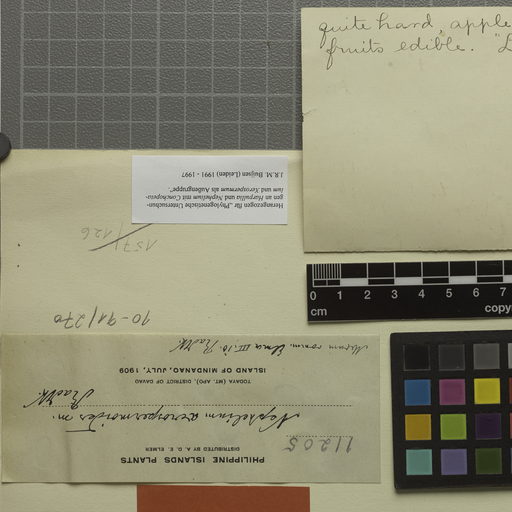 quite hard, apple
fruits edible. "L
Herangezogen für „Phylogenetische Untersuchun-
gen an Harpullia und Nephelium mit Conchopeta-
lum und Xerospermum als Außengruppe“.
J.R.M. Buijsen (Leiden) 1991 - 1997
1571/126
90-91/270
0 1 2 3 4 5 6 7
cm
copy
PHILIPPINE ISLANDS PLANTS
DISTRIBUTED BY A. D. E. ELMER
11205
Nephelium xerospermoides m.
Radlk.
TODAYA (MT. APO), DISTRICT OF DAVAO
ISLAND OF MINDANAO, JULY, 1909
comm. Elmer III.10. Radlk.